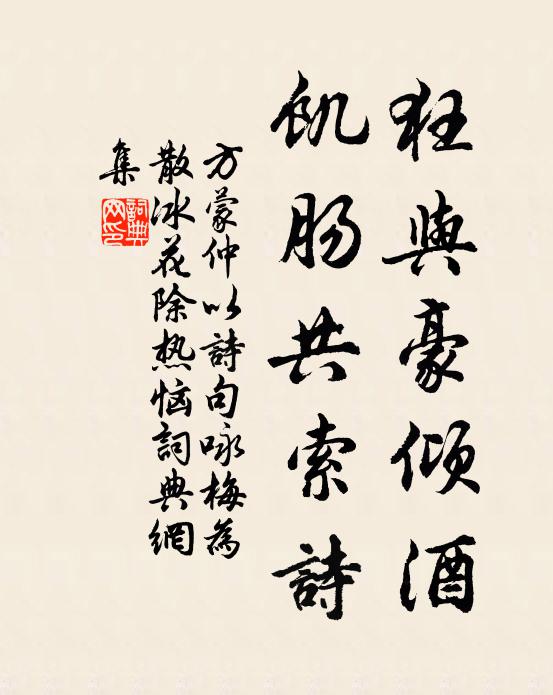 狂與豪傾酒
飢腸共索詩
方蒙仲以詩句咏梅為
散冰花除热恼詞典網
集
詞典網印